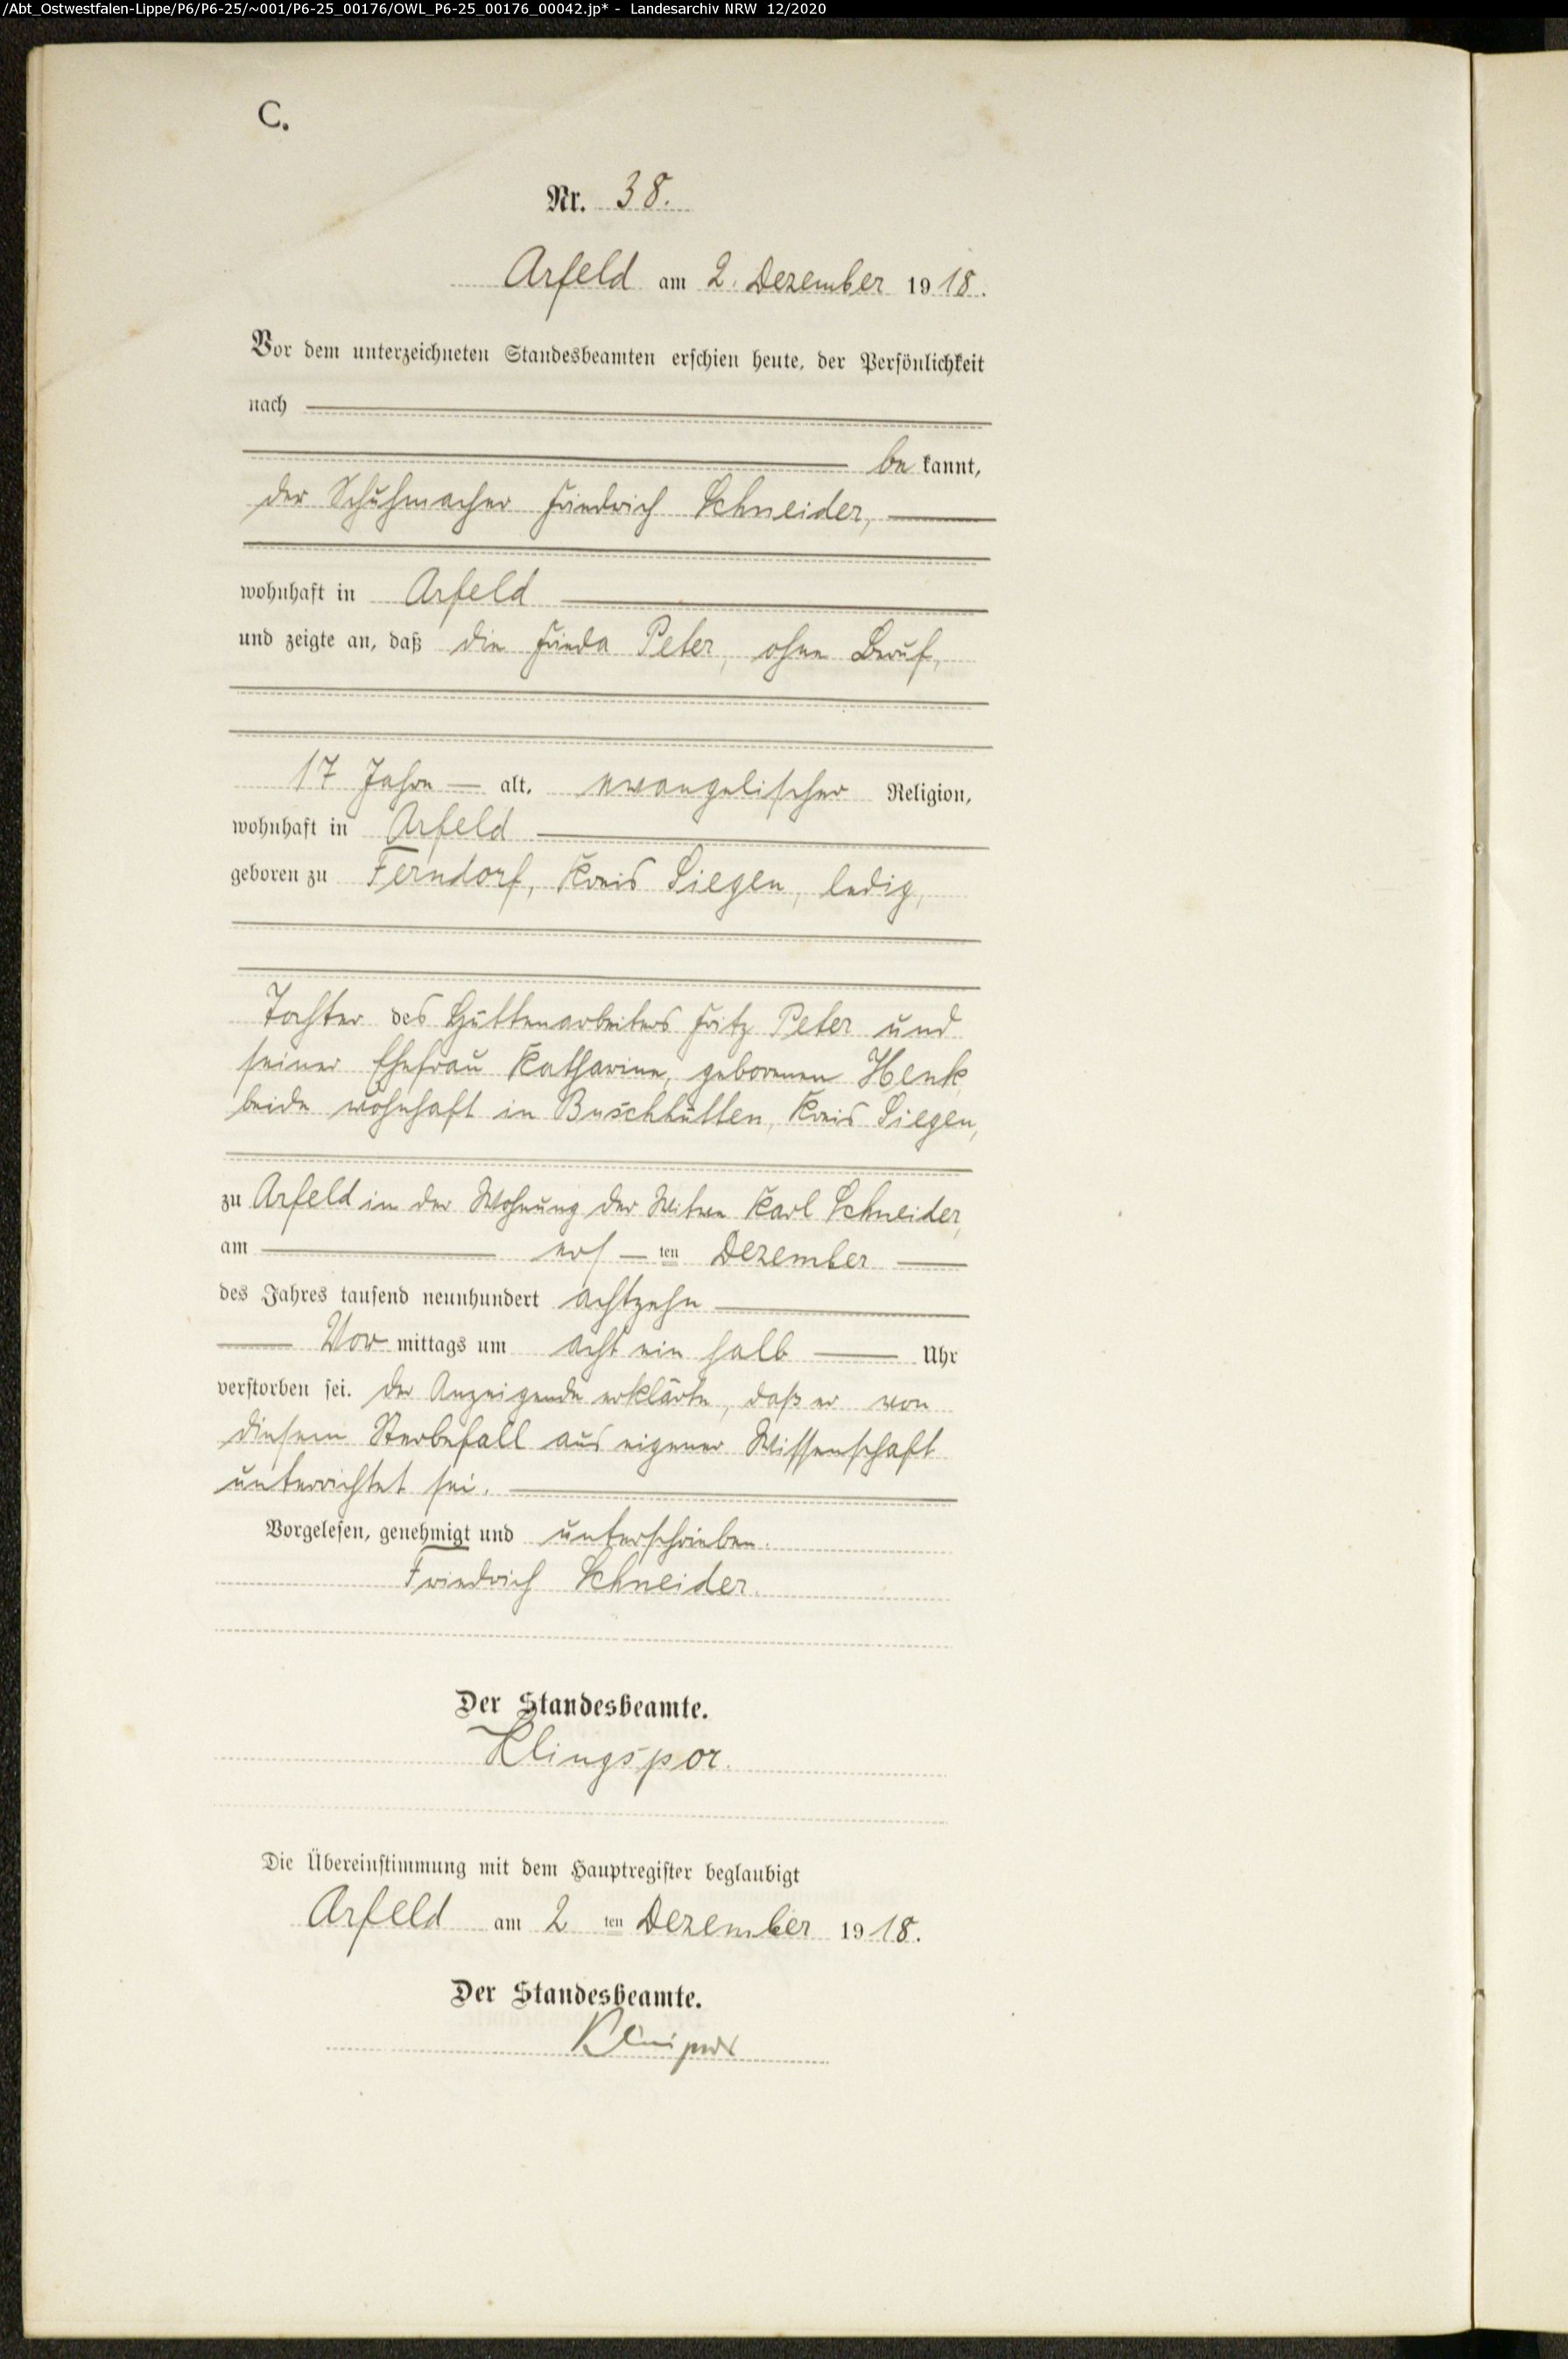 /Abt_Ostwestfalen-Lippe/P6/P6-25/~001/P6-25_00176/OWL_P6-25_00176_00042.jp* - Landesarchiv NRW 12/2020
C.
Nr. 38.
Arfeld am 2. Dezember 1918.
Vor dem unterzeichneten Standesbeamten erschien heute, der Persönlichkeit
nach
be kannt,
der Schuhmacher Friedrich Schneider,
wohnhaft in Arfeld
und zeigte an, daß die Frieda Peter, ohne Beruf,
17 Jahre alt, evangelischer Religion,
wohnhaft in Arfeld
geboren zu Ferndorf, Kreis Siegen, ledig,
Tochter des Hüttenarbeiters Fritz Peter und
seiner Ehefrau Katharine, geborenen Henk
beide wohnhaft in Buschhütten, Kreis Siegen,
zu Arfeld in der Wohnung der Witwe Karl Schneider,
am ers ten Dezember
des Jahres tausend neunhundert achtzehn
Vor mittags um acht ein halb Uhr
verstorben sei. Der Anzeigende erklärte, daß er von
diesem Sterbefall aus eigener Wissenschaft
unterrichtet sei.
Vorgelesen, genehmigt und unterschrieben.
Friedrich Schneider.
Der Standesbeamte.
Klingspor.
Die Übereinstimmung mit dem Hauptregister beglaubigt
Arfeld am 2 ten Dezember 1918.
Der Standesbeamte.
Klingspor